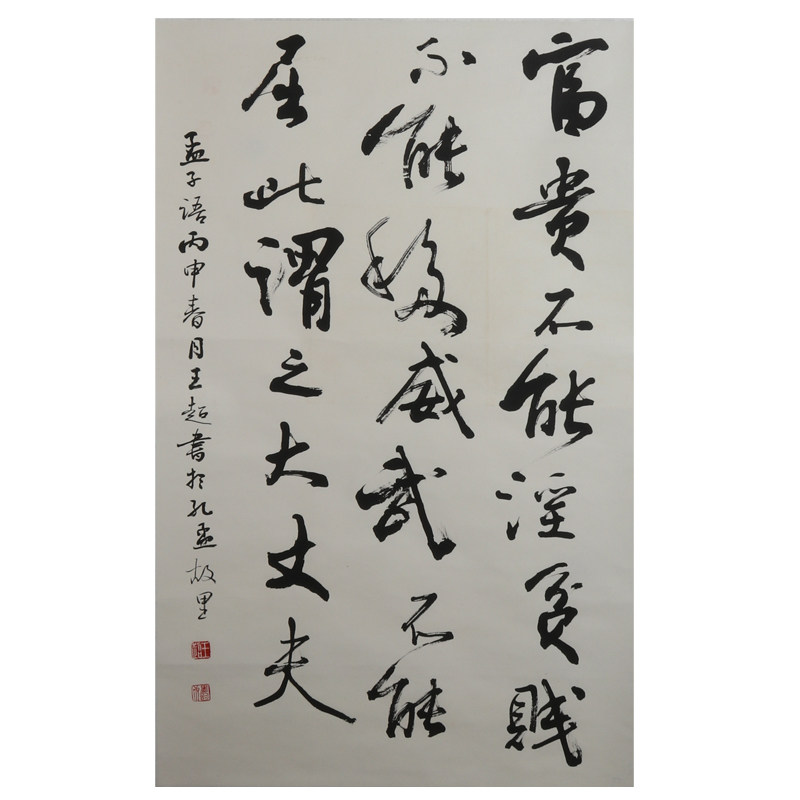 富贵不能淫贫贱
不能移威武不能
屈此谓之大丈夫
孟子语丙申春月王超书於孔孟故里